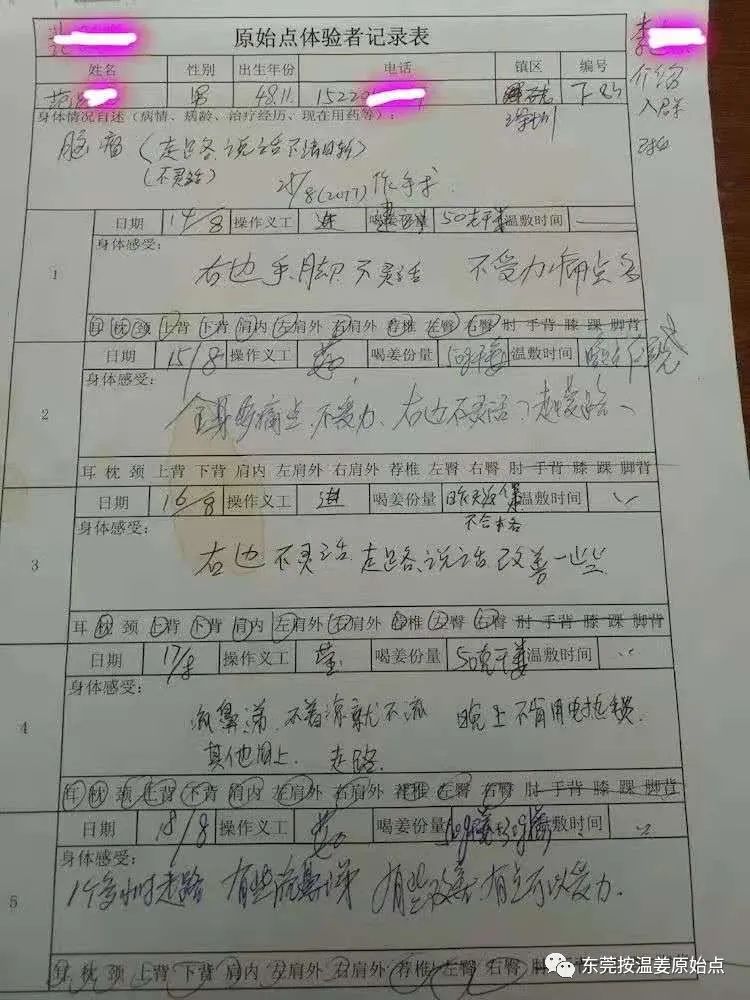 原始点体验者记录表
姓名 性别 出生年份 电话 镇区 编号
范 男 48.11. 1522
介绍
入群
身体情况自述（病情、病龄、治疗经历、现在用药等）：
脑瘤（走路、说话不清晰）
（不灵活） 25/8(2017)作手术.
1
日期 14/8 操作义工 进 喝姜份量 50克干姜 温敷时间 —
身体感受：
右边手、脚不灵活 不受力 痛点多
耳 枕 颈 上背 下背 肩内 左肩外 右肩外 荐椎 左臀 右臀 肘 手背 膝 踝 脚背
2
日期 15/8 操作义工 喝姜份量 温敷时间
身体感受：
全身多痛点、不受力、右边不灵活
耳 枕 颈 上背 下背 肩内 左肩外 右肩外 荐椎 左臀 右臀 肘 手背 膝 踝 脚背
3
日期 16/8 操作义工 进 喝姜份量 昨天 温敷时间
身体感受：
右边不灵活 走路、说话、改善一些
耳 枕 颈 上背 下背 肩内 左肩外 右肩外 荐椎 左臀 右臀 肘 手背 膝 踝 脚背
4
日期 17/8 操作义工 喝姜份量 50克干姜 温敷时间
身体感受：
流鼻涕、不着凉就不流 晚上不有用电热毯.
其他同上. 走路.
耳 枕 颈 上背 下背 肩内 左肩外 右肩外 荐椎 左臀 右臀 肘 手背 膝 踝 脚背
5
日期 18/8 操作义工 喝姜份量 温敷时间
身体感受：
1个多小时走路 有些流鼻涕 有些改善.有点可以受力.
耳 枕 颈 上背 下背 肩内 左肩外 右肩外 荐椎 左臀 右臀
东莞按温姜原始点